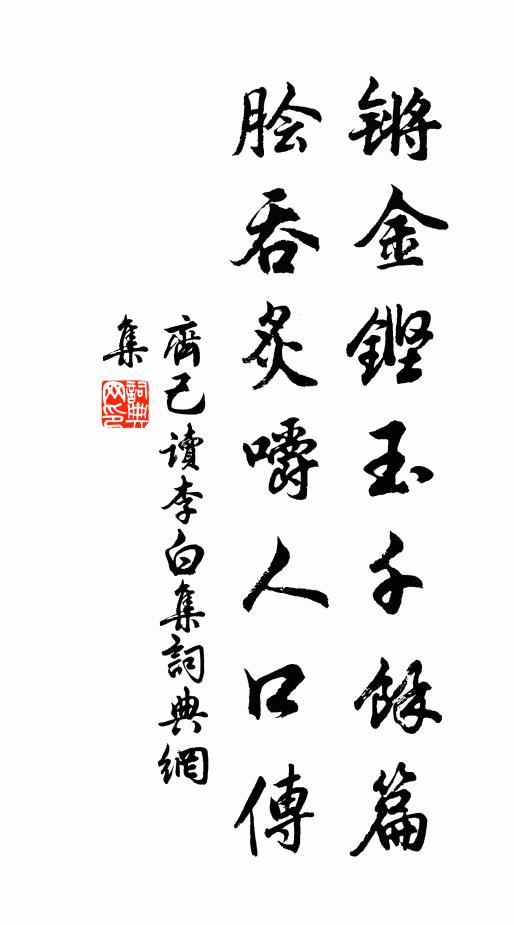 锵金鏗玉千餘篇
膾吞炙嚼人口傳
齊己讀李白集詞典網
集
詞典網印